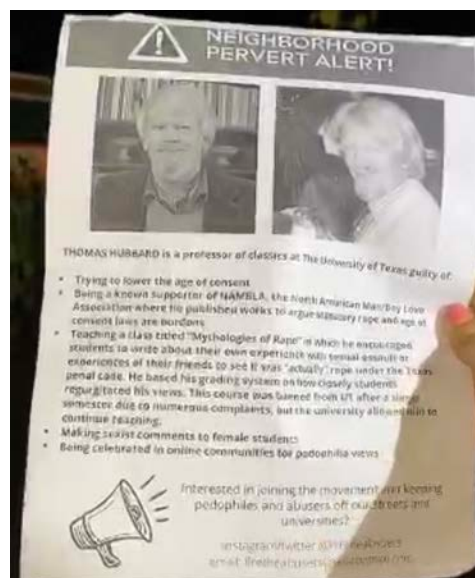 NEIGHBORHOOD
PERVERT ALERT!
THOMAS HUBBARD is a professor of classics at The University of Texas guilty of:
• Trying to lower the age of consent
• Being a known supporter of NAMBLA, the North American Man/Boy Love
Association where he published works to argue statutory rape and age of
consent laws are burdons
• Teaching a class titled "Mythologies of Rape" in which he encouraged
students to write about their own experience with sexual assault or
experiences of their friends to see if it was "actually" rope under the Texas
penal code. He based his grading system on how closely students
regurgitated his views. This course was banned from UT after a
semester due to numerous complaints, but the university allowed him to
continue teaching.
• Making sexist comments to female students
• Being celebrated in online communities for pedophilia views
Interested in joining the movement and keeping
pedophiles and abusers off our streets and
universities?
instagram/twitter
email: